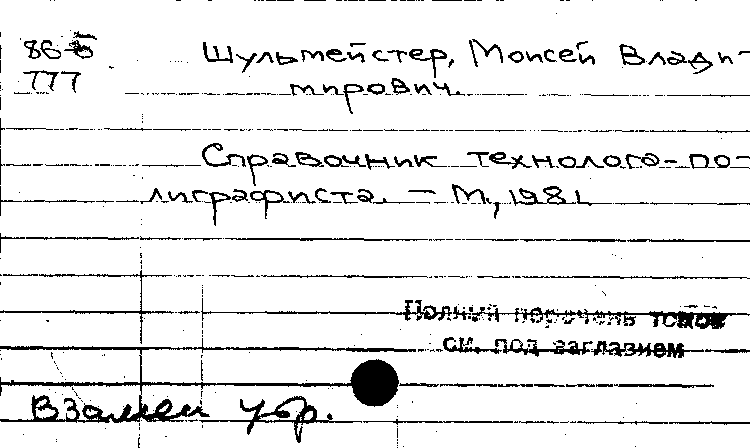 86-5 Шульмейстер, Моисей Влади-
777 мирович.
Справочник технолога-по-
лиграфиста. – М., 1981.
Полный перечень томов
см. под заглавием
Взамен утр.